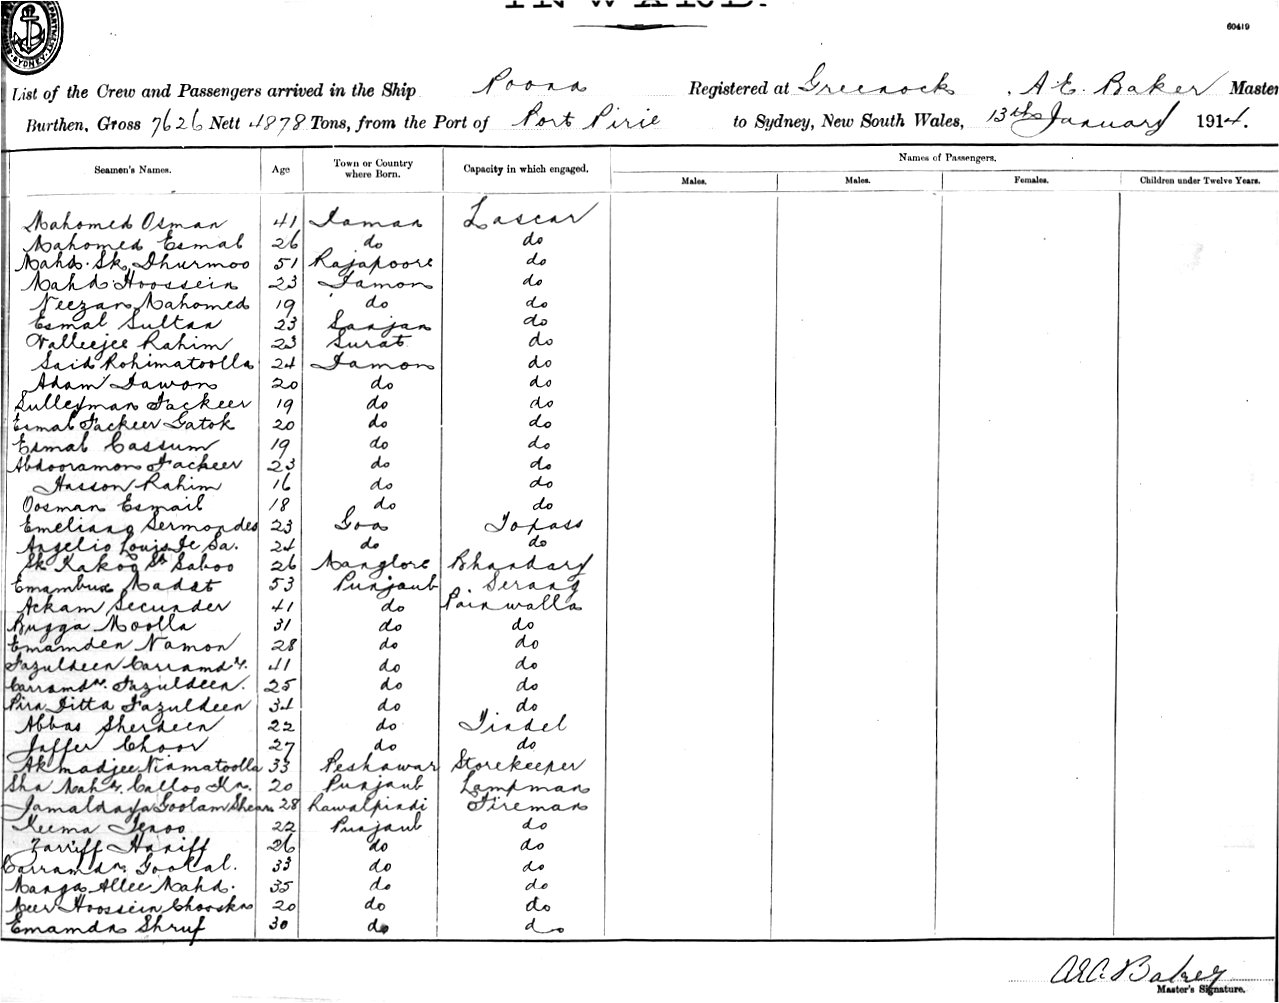 INWARD.
SYDNEY
60419
List of the Crew and Passengers arrived in the Ship Poona Registered at Greenock, A E. Baker Master
Burthen, Gross 7626 Nett 4878 Tons, from the Port of Port Pirie to Sydney, New South Wales, 13th January 1914.
Seamen's Names. Age Town or Country where Born. Capacity in which engaged. Names of Passengers.
Males. Males. Females. Children under Twelve Years.
Mahomed Osman 41 Daman Lascar
Mahomed Esmal 26 do do
Mahd. Sk. Dhurmoo 51 Rajapoore do
Mahd Hoossein 23 Damon do
Neezam Mahomed 19 do do
Esmal Sultan 23 Sanjan do
Valleejee Rahim 23 Surat do
Said Rohimatoolla 24 Damon do
Adam Dawon 20 do do
Sulleyman Fackeer 19 do do
Esmal Fackeer Gatok 20 do do
Esmal Cassum 19 do do
Abdooramon Fackeer 23 do do
Hasson Rahim 16 do do
Oosman Esmail 18 do do
Emeliano Sermondes 23 Goa Topass
Angelio Louis De Sa. 24 do do
Sk Kakoo Sk Saboo 26 Manglore Bhandary
Emambux Madat 53 Punjaub Serang
Ackam Secunder 41 do Painwalla
Bugga Moolla 31 do do
Emamden Namon 28 do do
Fazuldeen Carramdn. 41 do do
Carramdn. Fazuldeen. 25 do do
Pira Ditta Fazuldeen 34 do do
Abbas Sherdeen 22 do Tindel
Jaffer Choor 27 do do
Akmadjee Niamatoolla 33 Peshawar Storekeeper
Sha Mahd. Calloo Kn. 20 Punjaub Lampman
Jamaldaya Goolam Shean 28 Rawalpindi Fireman
Keema Jenoo 22 Punjaub do
Zarriff Haniff 26 do do
Carramdn. Gookal. 33 do do
Manga Allee Mahd. 35 do do
Meer Hoossein Chooska 20 do do
Emamdn Shruf 30 do do
A E Baker
Master's Signature.